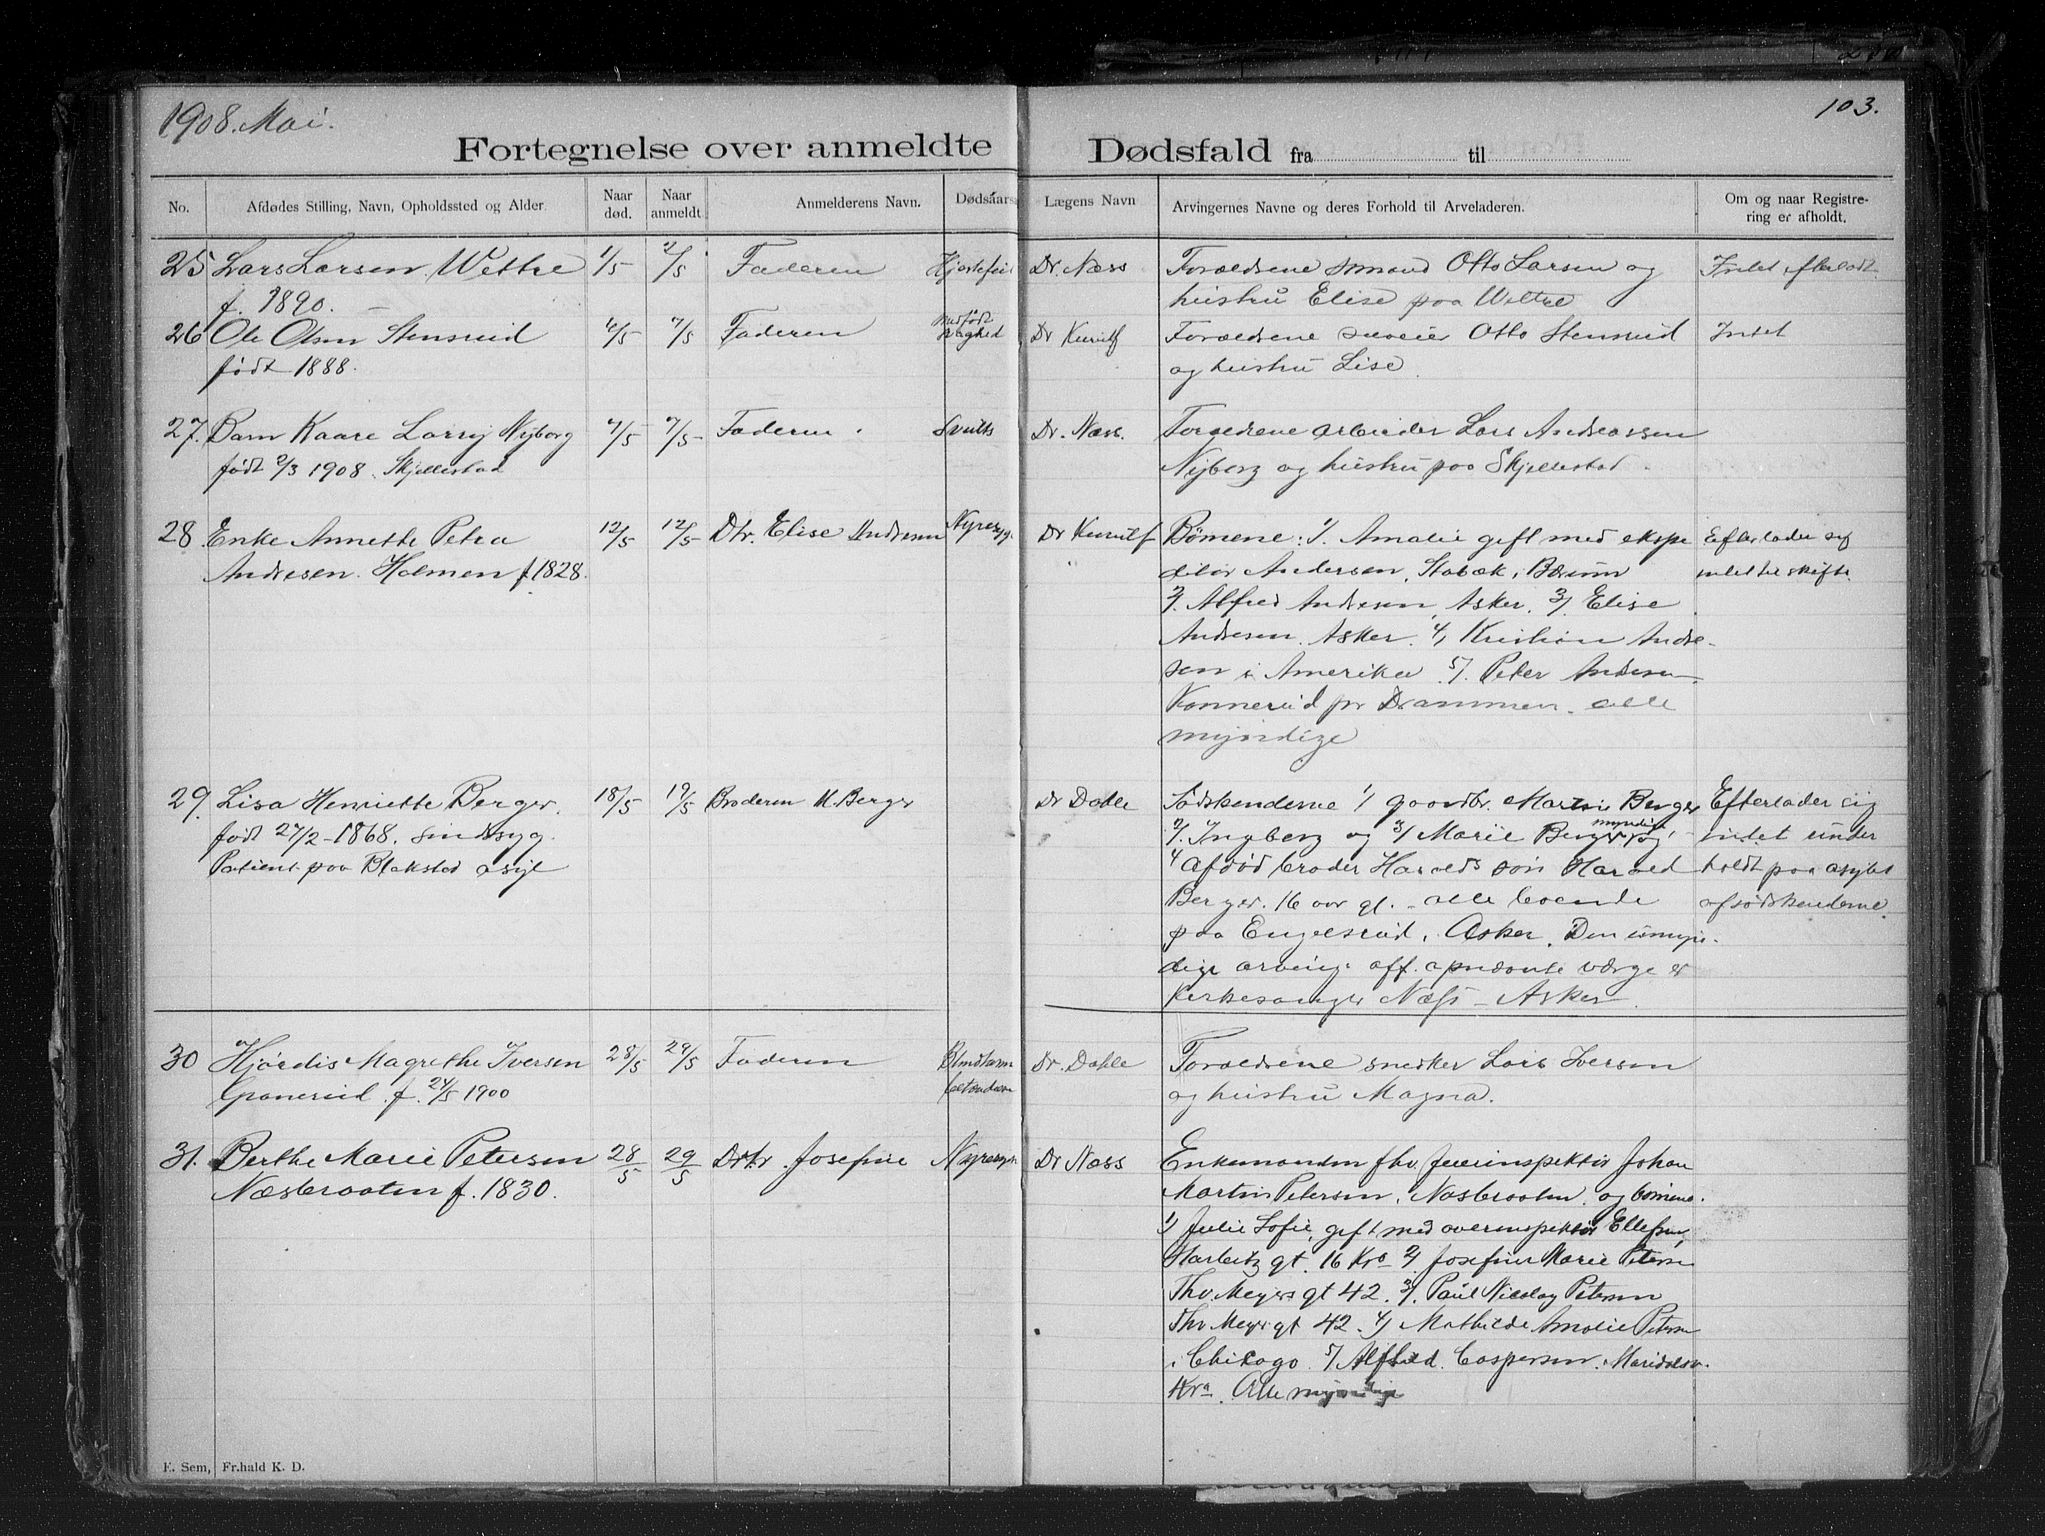 1908. Mai.
103.
Fortegnelse over anmeldte Dødsfald fra til
No. Afdødes Stilling, Navn, Opholdssted og Alder. Naar død. Naar anmeldt. Anmelderens Navn. Dødsaars Lægens Navn Arvingernes Navne og deres Forhold til Arveladeren. Om og naar Registrering er afholdt.
25 Lars Larsen Wettre 1/5 2/5 Faderen Hjertefeil Dr. Næss Forældrene Otto Larsen og Intet efterladt
f. 1890. hustru Elise paa Wettre
26 Ole Olsen Stensrud 6/5 7/5 Faderen medfødt svaghed Dr Forældrene Otto Stensrud Intet
født 1888. og hustru Lise
27. Barn Kaare Larry Nyborg 7/5 7/5 Faderen Dr. Næss. Forældrene arbeider Lars Andreassen
født 2/3 1908. Skjellestad Nyborg og hustru paa Skjellestad
28 Enke Annette Petra 12/5 12/5 Dtr. Elise Andresen Nyresyg. Dr Børnene: 1/. Amalie gift med ekspe Efterlader sig
Andresen. Holmen f. 1828. ditør Andersen, Stabæk, Bærum intet til skifte.
2/. Alfred Andresen, Asker. 3/. Elise
Andresen. Asker. 4, Kristian Andre-
sen i Amerika 5/. Peter Andresen
Konnerud pr Drammen. alle
myndige
29. Lisa Henriette Berger. 18/5 19/5 Broderen M. Berger Dr Dahle Sødskenderne 1/ gaardbr. Martin Berger Efterlader sig
født 27/2-1868. sindssyg. 2/. Ingeborg og 3/ Marie Berger myndige, og intet under
Patient paa Blakstad asyl 4 afdød broder Haralds søn Harald holdt paa asylet
Berger. 16 aar gl. - alle boende af sødskenderne.
paa Engelsrud, Asker. Den umyn-
dige arvings off. opnævnte værge er
kirkesanger Næss - Asker.
30 Hjørdis Magrethe Iversen 28/5 29/5 Faderen Blindtarm betændelse Dr. Dahle Forældrene snedker Lars Iversen
Granerud. f. 24/5 1900 og hustru Magna.
31. Berthe Marie Petersen 28/5 29/5 Dtr. Josefine Nyresyge Dr Næss Enkemanden fhv. fyrinspektør Johan
Næsbraaten f. 1830. Martin Petersen, Næsbraaten og børnene.
1/ Julie Sofie, gift med overinspektør Ellefsen,
Harbitz gt. 16 Kra 2/. Josefine Marie Petersen
Thv. Meyers gt 42. 3/. Paul Nicolay Petersen
Thv Meyers gt 42. 4/ Mathilde Amalie Petersen
i Chicago. 5/ Alfred Caspersen. Maridalsv.
Kra. Alle myndige
F. Sem, Fr.hald K. D.